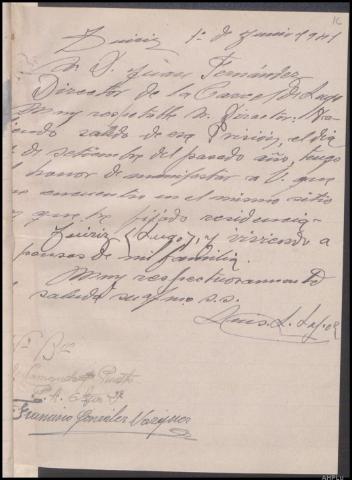 16
Guiriz 1º de Junio 1941
Sr. D. Juan Fernández
Director de la Carcel de Lugo
Muy respetable Sr. Director:
salido de esa Prisión, el dia
de setiembre del pasado año, tengo
honor de manifestar a V. que
me encuentro en el mismo sitio
y que he fijado residencia
Guiriz (Lugo), y viviendo a
pensas de mi familia.
Muy respetuosamente
saluda su s.s.
Luis L. López
Vº Bº
Comandante Puesto
P. A.
Francisco González Vázquez
AHPLU